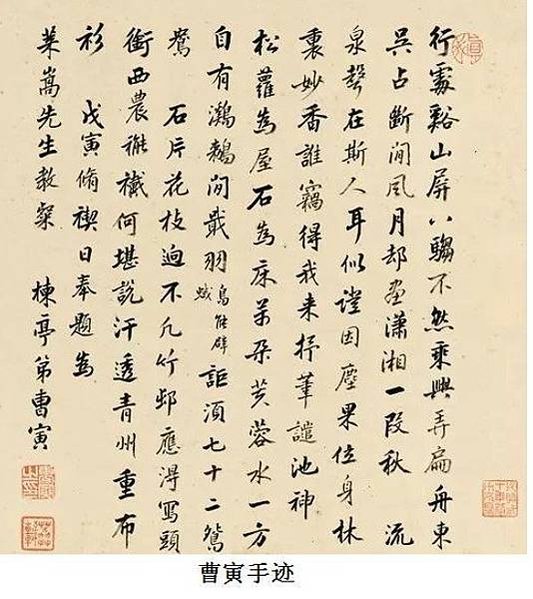 行處谿山屏八騶不然乘興弄扁舟東
吳占斷閒風月却畫瀟湘一段秋 流
泉聲在斯人耳似證因塵果位身林
裏妙香誰竊得我来抒筆譴池神
松蘿為屋石為床万朵芙蓉水一方
自有鸂鶒閒戢羽鳥能辟蜮詎須七十二鴛
鴦 石片花枝迥不凡竹邨應淂寫頭
銜西農褦襶何堪說汗透青州重布
衫 戊寅脩禊日奉題為
萊嵩先生教粲 楝亭弟曹寅
曹寅手迹